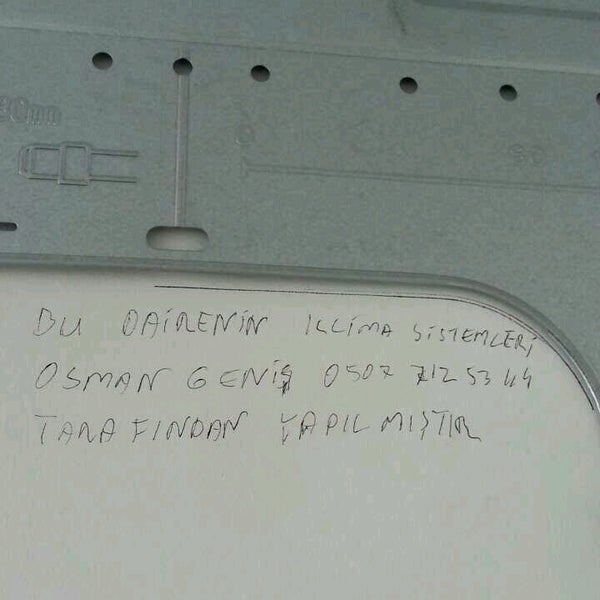 BU DAİRENİN İKLİMA SİSTEMLERİ
OSMAN GENİŞ 0507 712 53 44
TARAFINDAN YAPILMIŞTIR